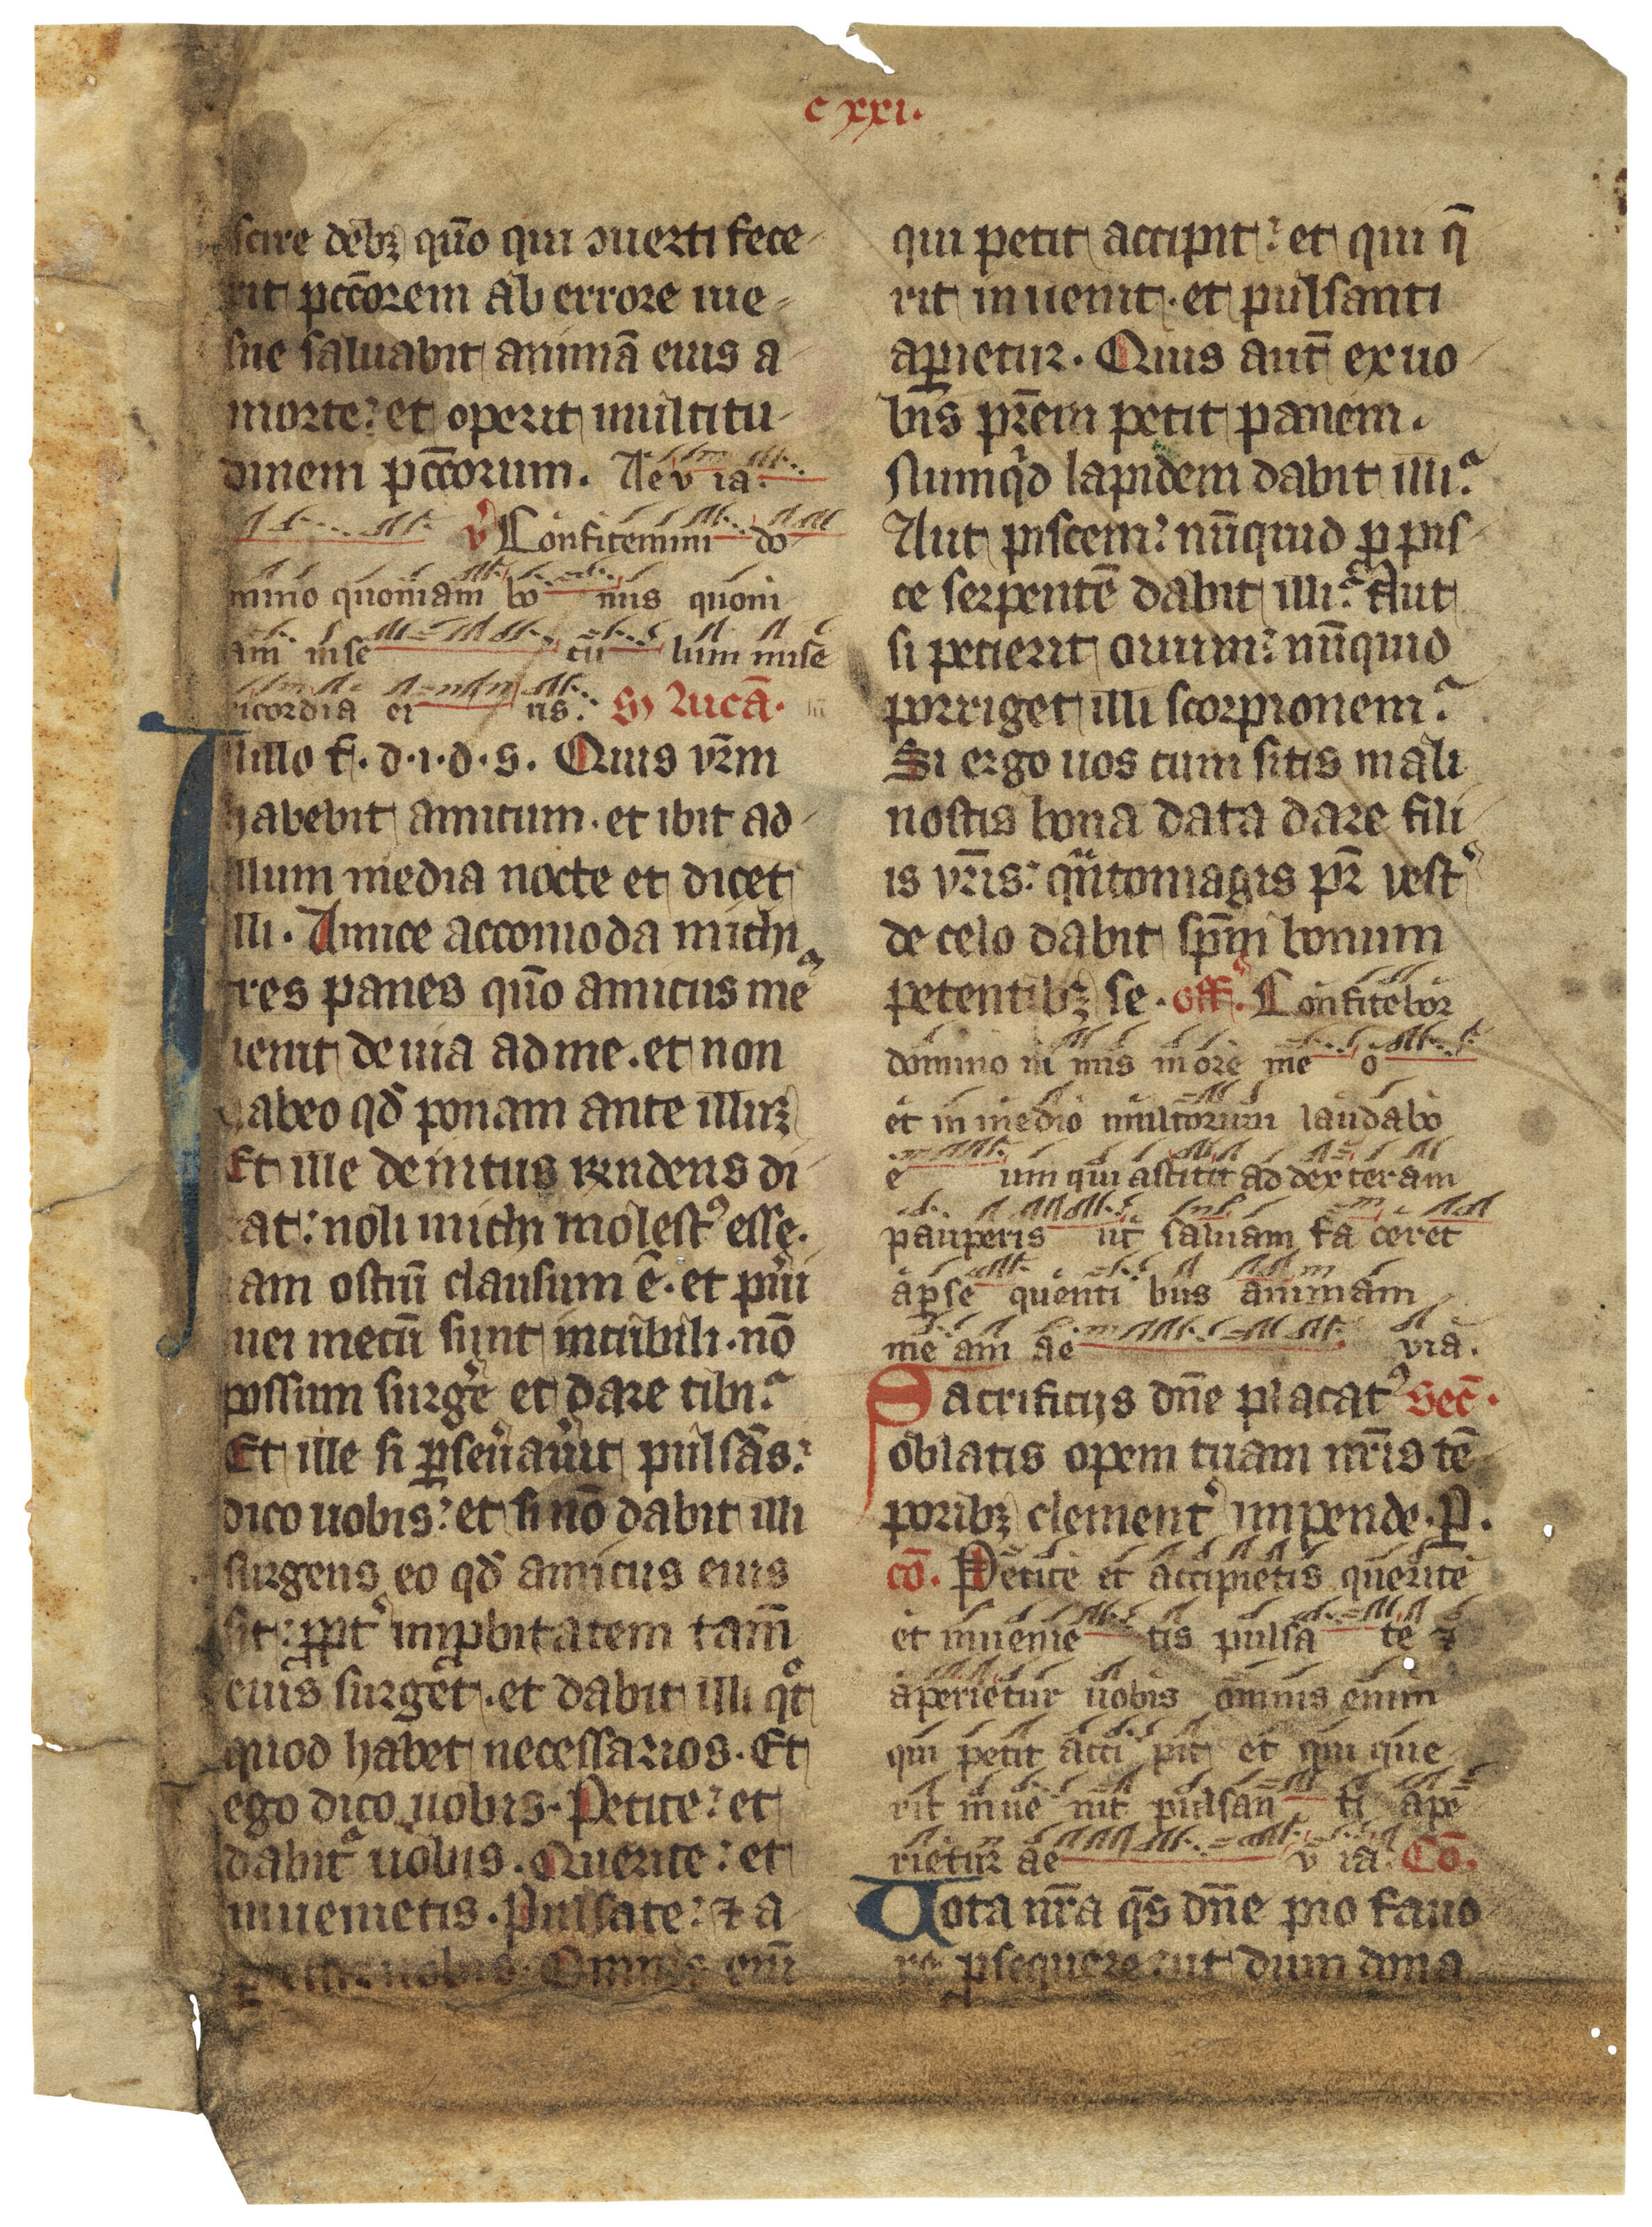 cxxi.
scire debꝫ quō qui ɔuerti fece
rit pccōrem ab errore uie
sue saluabit animā eius a
morte: et operit multitu
dinem pccōrum. Aeuia.
V̊ Confitemini do
mino quoniam bo nus quoni
am in se cu lum mise
ricordia ei us. S Lucā.
In illo t̄. d. i. d. s. Quis vr̄m
habebit amicum. et ibit ad
illum media nocte et dicet
illi. Amice accomoda michi
tres panes quō amicus meꝰ
uenit de uia ad me. et non
habeo qd̄ ponam ante illuꝫ
Et ille deintus rn̄dens di
cat: noli michi molestꝰ esse.
iam ostiū clausum ē. et pu̾i
mei mecū sunt in cubili. nō
possum surge̾ et dare tibi.
Et ille si ꝑseūau̾it pulsās:
dico uobis: et si nō dabit illi
surgens eo qd̄ amicus eius
sit: ꝓpt̾ imꝓbitatem tam̄
eius surget. et dabit illi qͦt
quod habet necessarios. Et
ego dico uobis. Petite: et
dabit᷑ uobis. Querite: et
inuenietis. Pulsate: ⁊ a
ꝑietur uobis. Omnis eni᷑
qui petit accipit: et qui q̄
rit inuenit. et pulsanti
aꝑietur. Quis aut̄ ex uo
bis pr̄em petit panem.
Numqͥd lapidem dabit illi.
Aut piscem: nūquid ꝓ pis
ce serpentē dabit illi. Aut
si petierit ouum: nūquid
porriget illi scorpionem.
Si ergo uos cum sitis mali
nostis bona data dare fili
is vr̄is: qͣntomagis pr̄ vest̾
de celo dabit sp̄m bonum
petentibꝫ se. off̾. Confitebor
domino ni mis in ore me o
et in medio multorum laudabo
e um qui astitit ad dexteram
pauperis ut saluam fa ceret
a ꝑse quenti bus animam
me am ae via.
Sacrificijs dn̄e placatꝰ Sec̄.
oblatis opem tuam nr̄is tē
poribꝫ clement̾ impende. P̄.
cō. Petite et accipietis querite
et inuenie tis pulsa te ⁊
aperietur uobis omnis enim
qui petit acci pit et qui que
rit inue nit pulsan ti ape
rietur ae v ia. Cō.
Uota nr̄a qs̄ dn̄e pio fauo
re ꝓsequere: ut dum dona